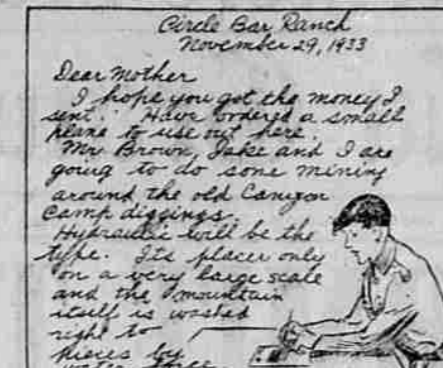 Circle Bar Ranch
November 29, 1933
Dear Mother
I hope you got the money I
sent. Have ordered a small
plane to use out here.
Mr. Brown, Jake and I are
going to do some mining
around the old Canyon
Camp diggings.
Hydraulic will be the
type. Its placer only
on a very large scale
and the mountain
itself is washed
right to
pieces by
water force